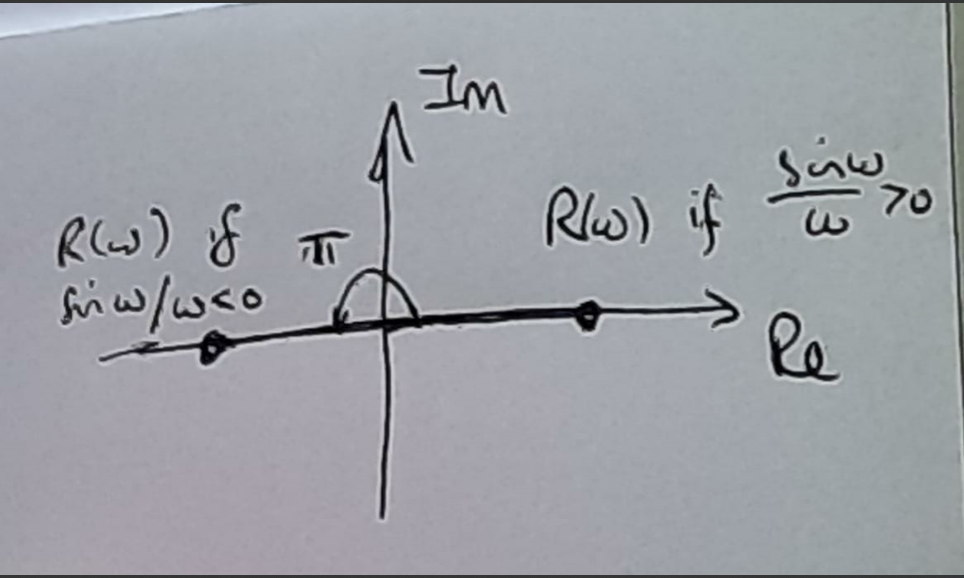 Im
R(ω) if sinω/ω >0
R(ω) if
sinω/ω<0
π
Re